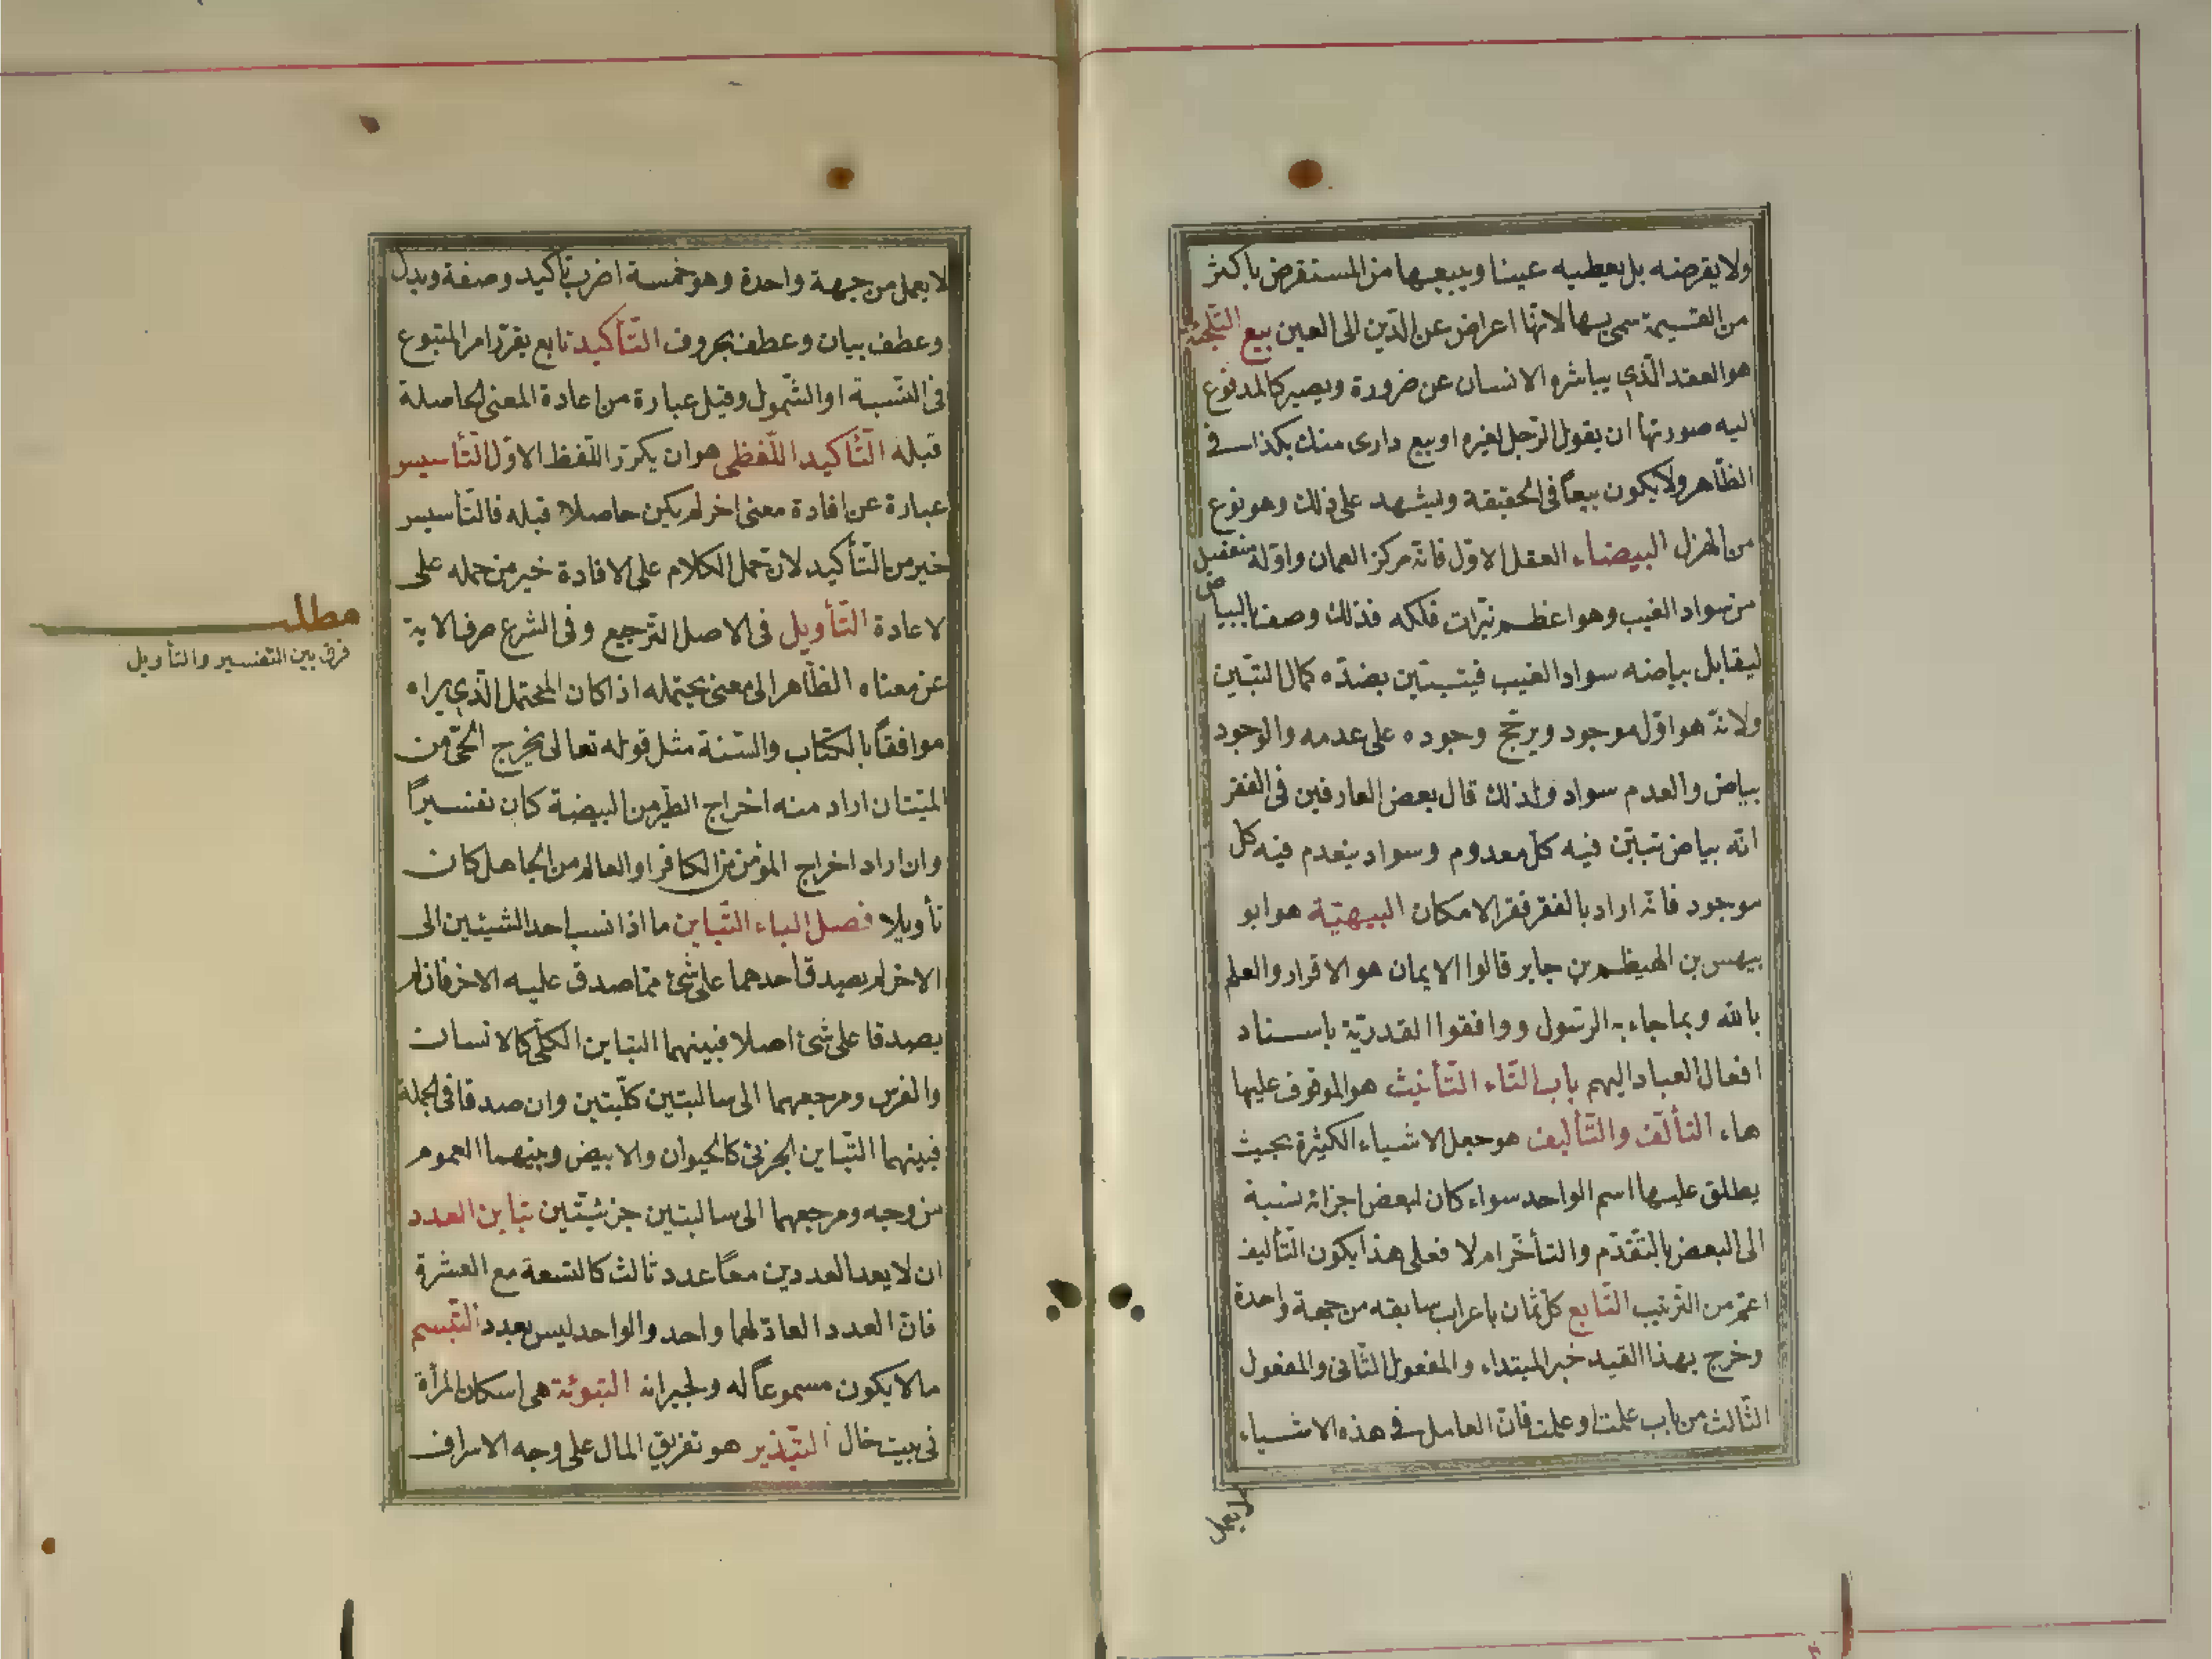 ولا يقرضه بل يعطيه عينا ويبيعها من المستقرض باكثر
من القيمة سمى بها لانها اعراض عن الدّين الى العين بيع التّلجئة
هو العقد الّذي يباشره الانسان عن ضرورة ويصير كالمدفوع
اليه صورتها ان يقول الرّجل لغيره اوبيع دارى منك بكذا فى
الظّاهر ولا يكون بيعاً فى الحقيقة ويشهد على ذلك وهو نوع
من الهزل البيضاء العقل الاوّل فانّه مركز العمان واوّل منفصل
من سواد الغيب وهو اعظم نيّرات فلكه فذلك وصف بالبياض
ليقابل بياضه سواد الغيب فيتبيّن بضدّه كمال التبيّن
ولانّه هو اوّل موجود ويرجّح وجوده على عدمه والوجود
بياض والعدم سواد ولذلك قال بعض العارفين فى الفقر
انّه بياض تبيّن فيه كلّ معدوم وسواد ينعدم فيه كل
موجود فانّه اراد بالفقر فقر الامكان البيهسيّة هو ابو
بيهس بن الهيظم بن جابر قالوا الايمان هو الاقرار والعلم
بالله وبما جاء به الرّسول ووافقوا القدريّة باسناد
افعال العباد اليهم باب التّاء التّأنيث هو الموقوف عليها
هاء التألّف والتّأليف هو جعل الاشياء الكثيرة بحيث
يطلق عليها اسم الواحد سواء كان لبعض اجزائه نسبة
الى البعض بالتّقدّم والتأخّر ام لا فعلى هذا يكون التّأليف
اعمّ من الترتيب التّابع كلّ ثان باعراب سابقه من جهة واحدة
وخرج بهذا القيد خبر المبتداء والمفعول الثّانى والمفعول
الثّالث من باب علمت او علمت فانّ العامل فى هذه الاشياء
لا يعمل
لا يعمل من جهة واحدة وهو خمسة اضرب تأكيد وصفة وبدل
وعطف بيان وعطف بحروف التّأكيد تابع يقرّر امر المتبوع
فى النّسبة او الشّمول وقيل عبارة من اعادة المعنى الحاصلة
قبله التّأكيد اللّفظى هو ان يكرّر اللّفظ الاوّل التّأسيس
عبارة عن افادة معنى اخر لم يكن حاصلا قبله فالتّأسيس
خير من التّأكيد لانّ حمل الكلام على الافادة خير من حمله على
لاعادة التّأويل فى الاصل الترجيع وفى الشرع صرف الاية
عن معناه الظّاهر الى معنى يحتمله اذا كان المحتمل الّذي يراه
موافقاً بالكتاب والسّنة مثل قوله تعالى يخرج الحىّ من
الميّت ان اراد منه اخراج الطّير من البيضة كان تفسيراً
وان اراد اخراج المؤمن من الكافر او العالم من الجاهل كان
تأويلا فصل الباء التّباين ما اذا نسب احد الشيئين الى
الاخر لم يصدق احدهما على شئ ممّا صدق عليه الاخر فان لم
يصدقا على شئ اصلا فبينهما التباين الكلّى كالانسان
والفرس ومرجعهما الى سالبتين كلّيتين وان صدقا فى الجملة
فبينهما التّباين الجزئى كالحيوان والابيض وبينهما العموم
من وجه ومرجعهما الى سالبتين جزئيّتين تباين العدد
ان لا يعد العددين معاً عدد ثالث كالتسعة مع العشرة
فانّ العدد العادّ لهما واحد والواحد ليس بعدد التّبسم
ما لا يكون مسموعاً له ولجيرانه التبوئة هى اسكان المرأة
فى بيت خال التّبذير هو تفريق المال على وجه الاسراف
مطلب
فرق بين التفسير والتأويل